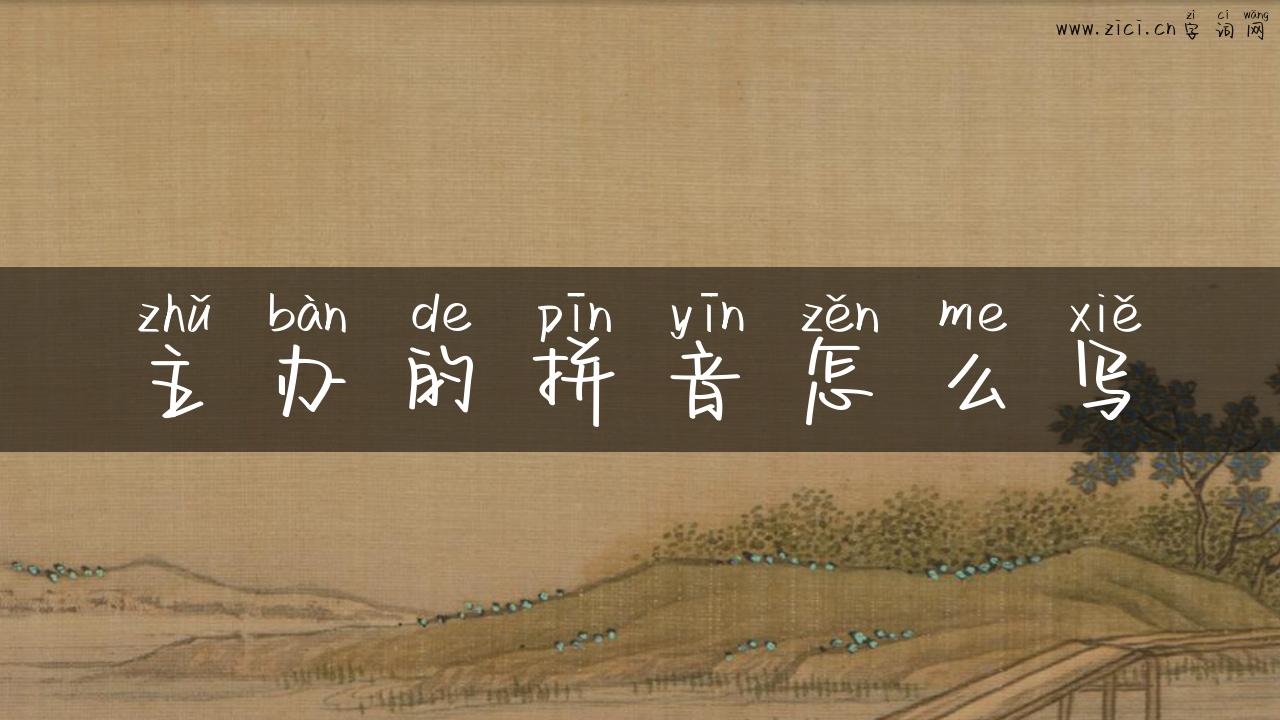 zì cí wǎng
www.zici.cn字词网
zhǔ bàn de pīn yīn zěn me xiě
主办的拼音怎么写